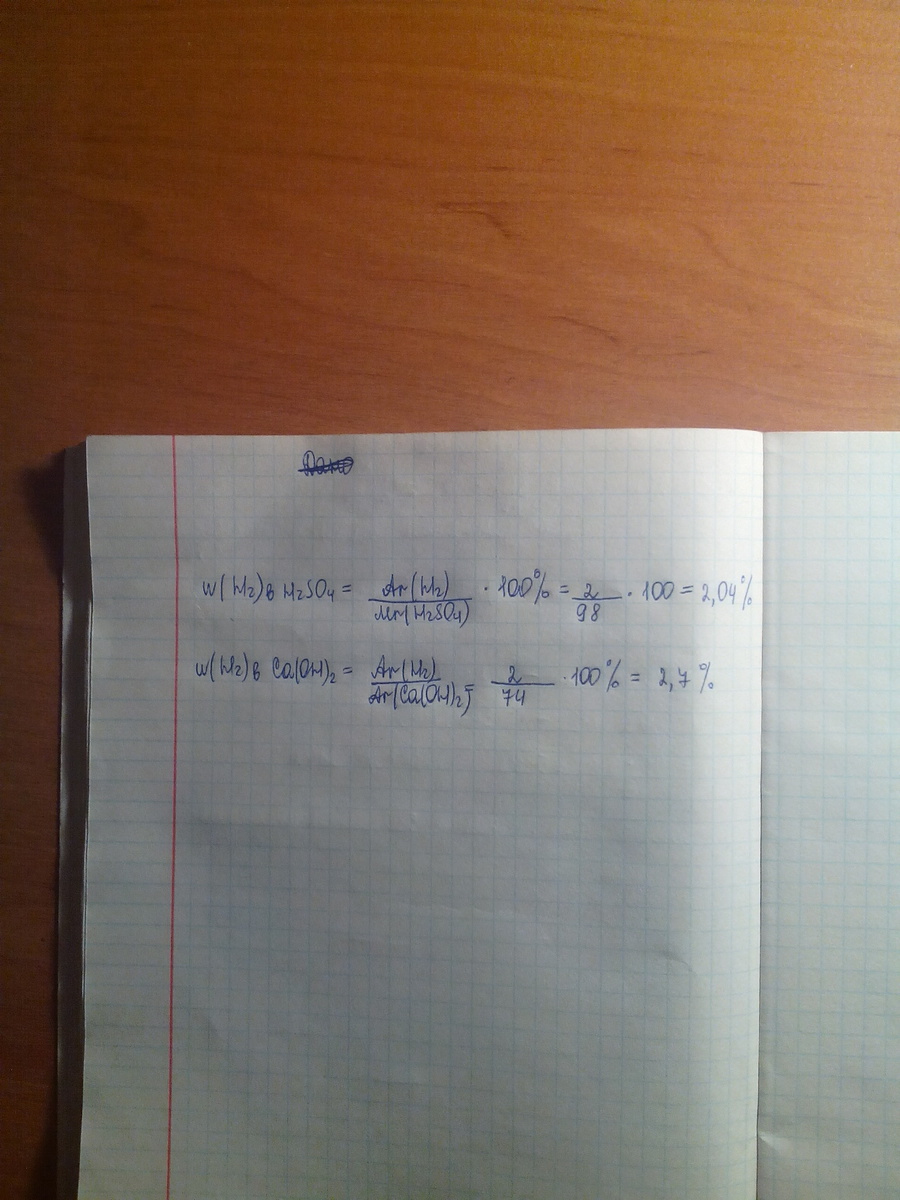 Дано
w(H₂) в H₂SO₄ = Ar(H₂) / Mr(H₂SO₄) · 100% = 2 / 98 · 100 = 2,04%
w(H₂) в Ca(OH)₂ = Ar(H₂) / Ar(Ca(OH)₂) = 2 / 74 · 100% = 2,7%